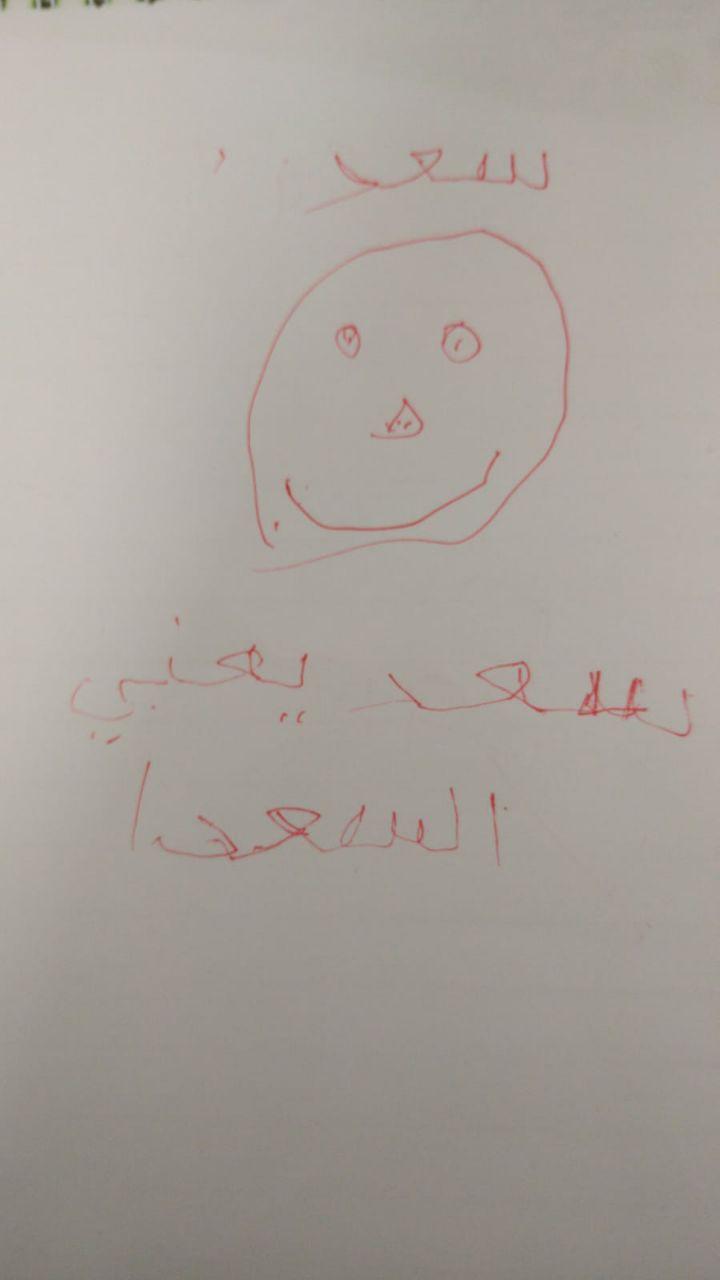 سعد
سعد يعني
السعدا